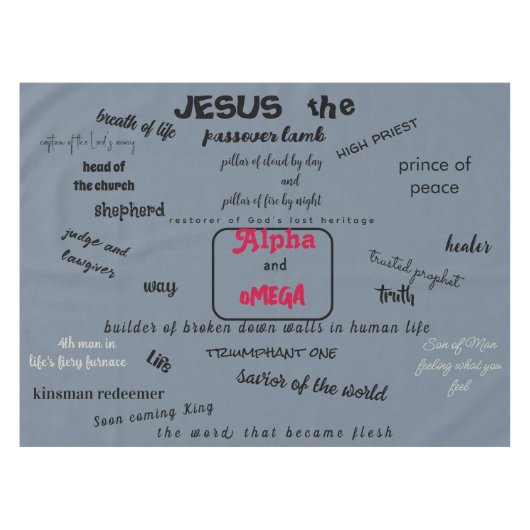 JESUS the
breath of life
passover lamb
HIGH PRIEST
captain of the Lord's army
pillar of cloud by day
and
pillar of fire by night
head of
the church
prince of
peace
shepherd
restorer of God's lost heritage
Alpha
and
oMEGA
judge and
lawgiver
healer
trusted prophet
way
truth
builder of broken down walls in human life
4th man in
life's fiery furnace
Life
TRIUMPHANT ONE
Son of Man
feeling what you
feel
savior of the world
kinsman redeemer
Soon coming King
the word that became flesh